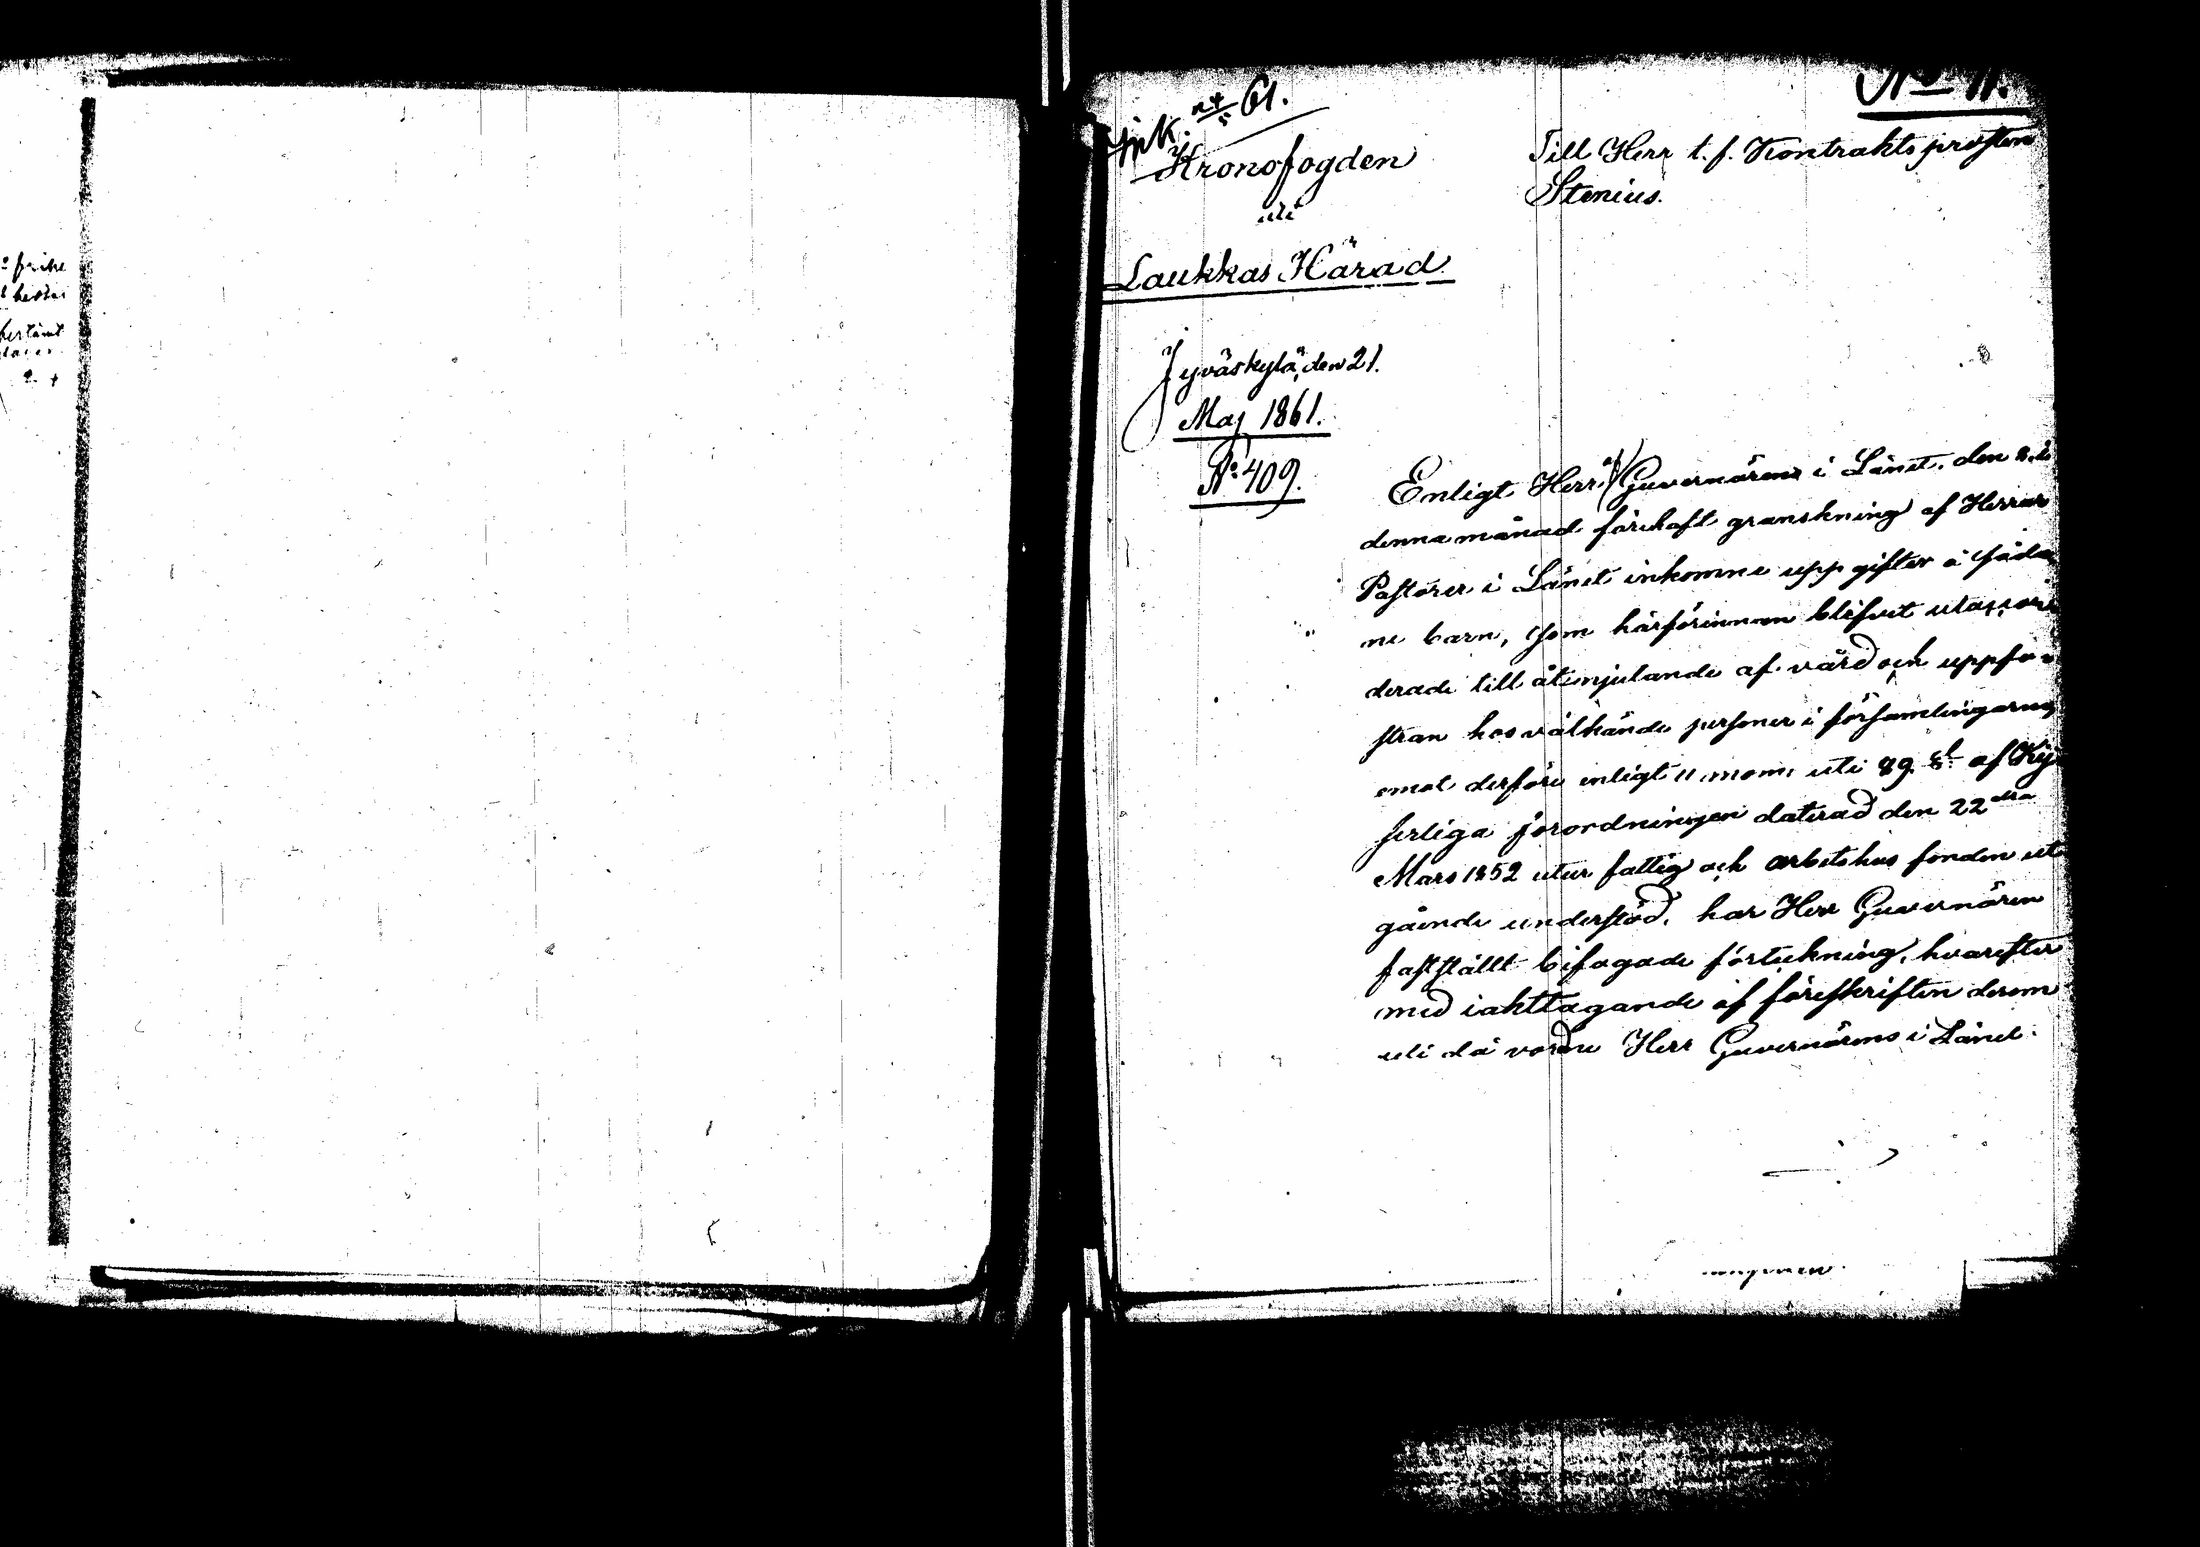 No 11.
ink. 24/5 61.
Kronofogden
uti
Laukkas Härad.
Till Herr t. f. Kontraktsprosten
Stenius.
Jyväskylä, den 21.
Maj 1861.
No 409.
Enligt Herr Guvernörens i Länet, den
denna månad förehaft granskning af Herrar
Pastorer i Länet inkomne uppgifter å såda
ne barn, som härförinnan blifvit utackor
derade till åtnjutande af vård och uppfo-
stran hos välkände personer i församlingarne,
emot derföre enligt 11 mom. uti 89 § af Kej
serliga förordningen daterad den 22dra
Mars 1852 utur fattig och arbetshus fonden ut
gående understöd, har Herr Guvernören
fastställt bifogade förteckning, hvarefter
med iakttagande af föreskriften derom
uti då vordne Herr Guvernörens i Länet